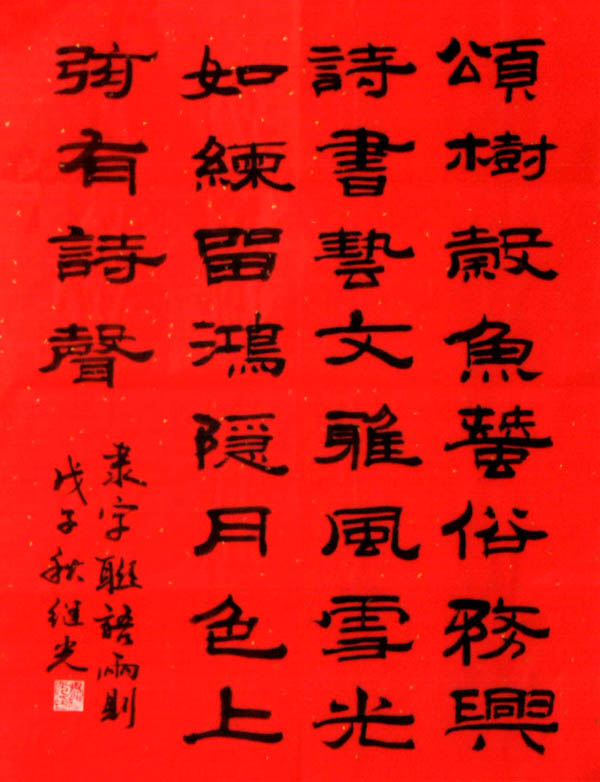 頌樹穀魚蠶俗務興
詩書藝文雅風雪光
如練留鴻隱月色上
弦有詩聲
隶字聯語兩則
戊子秋继光